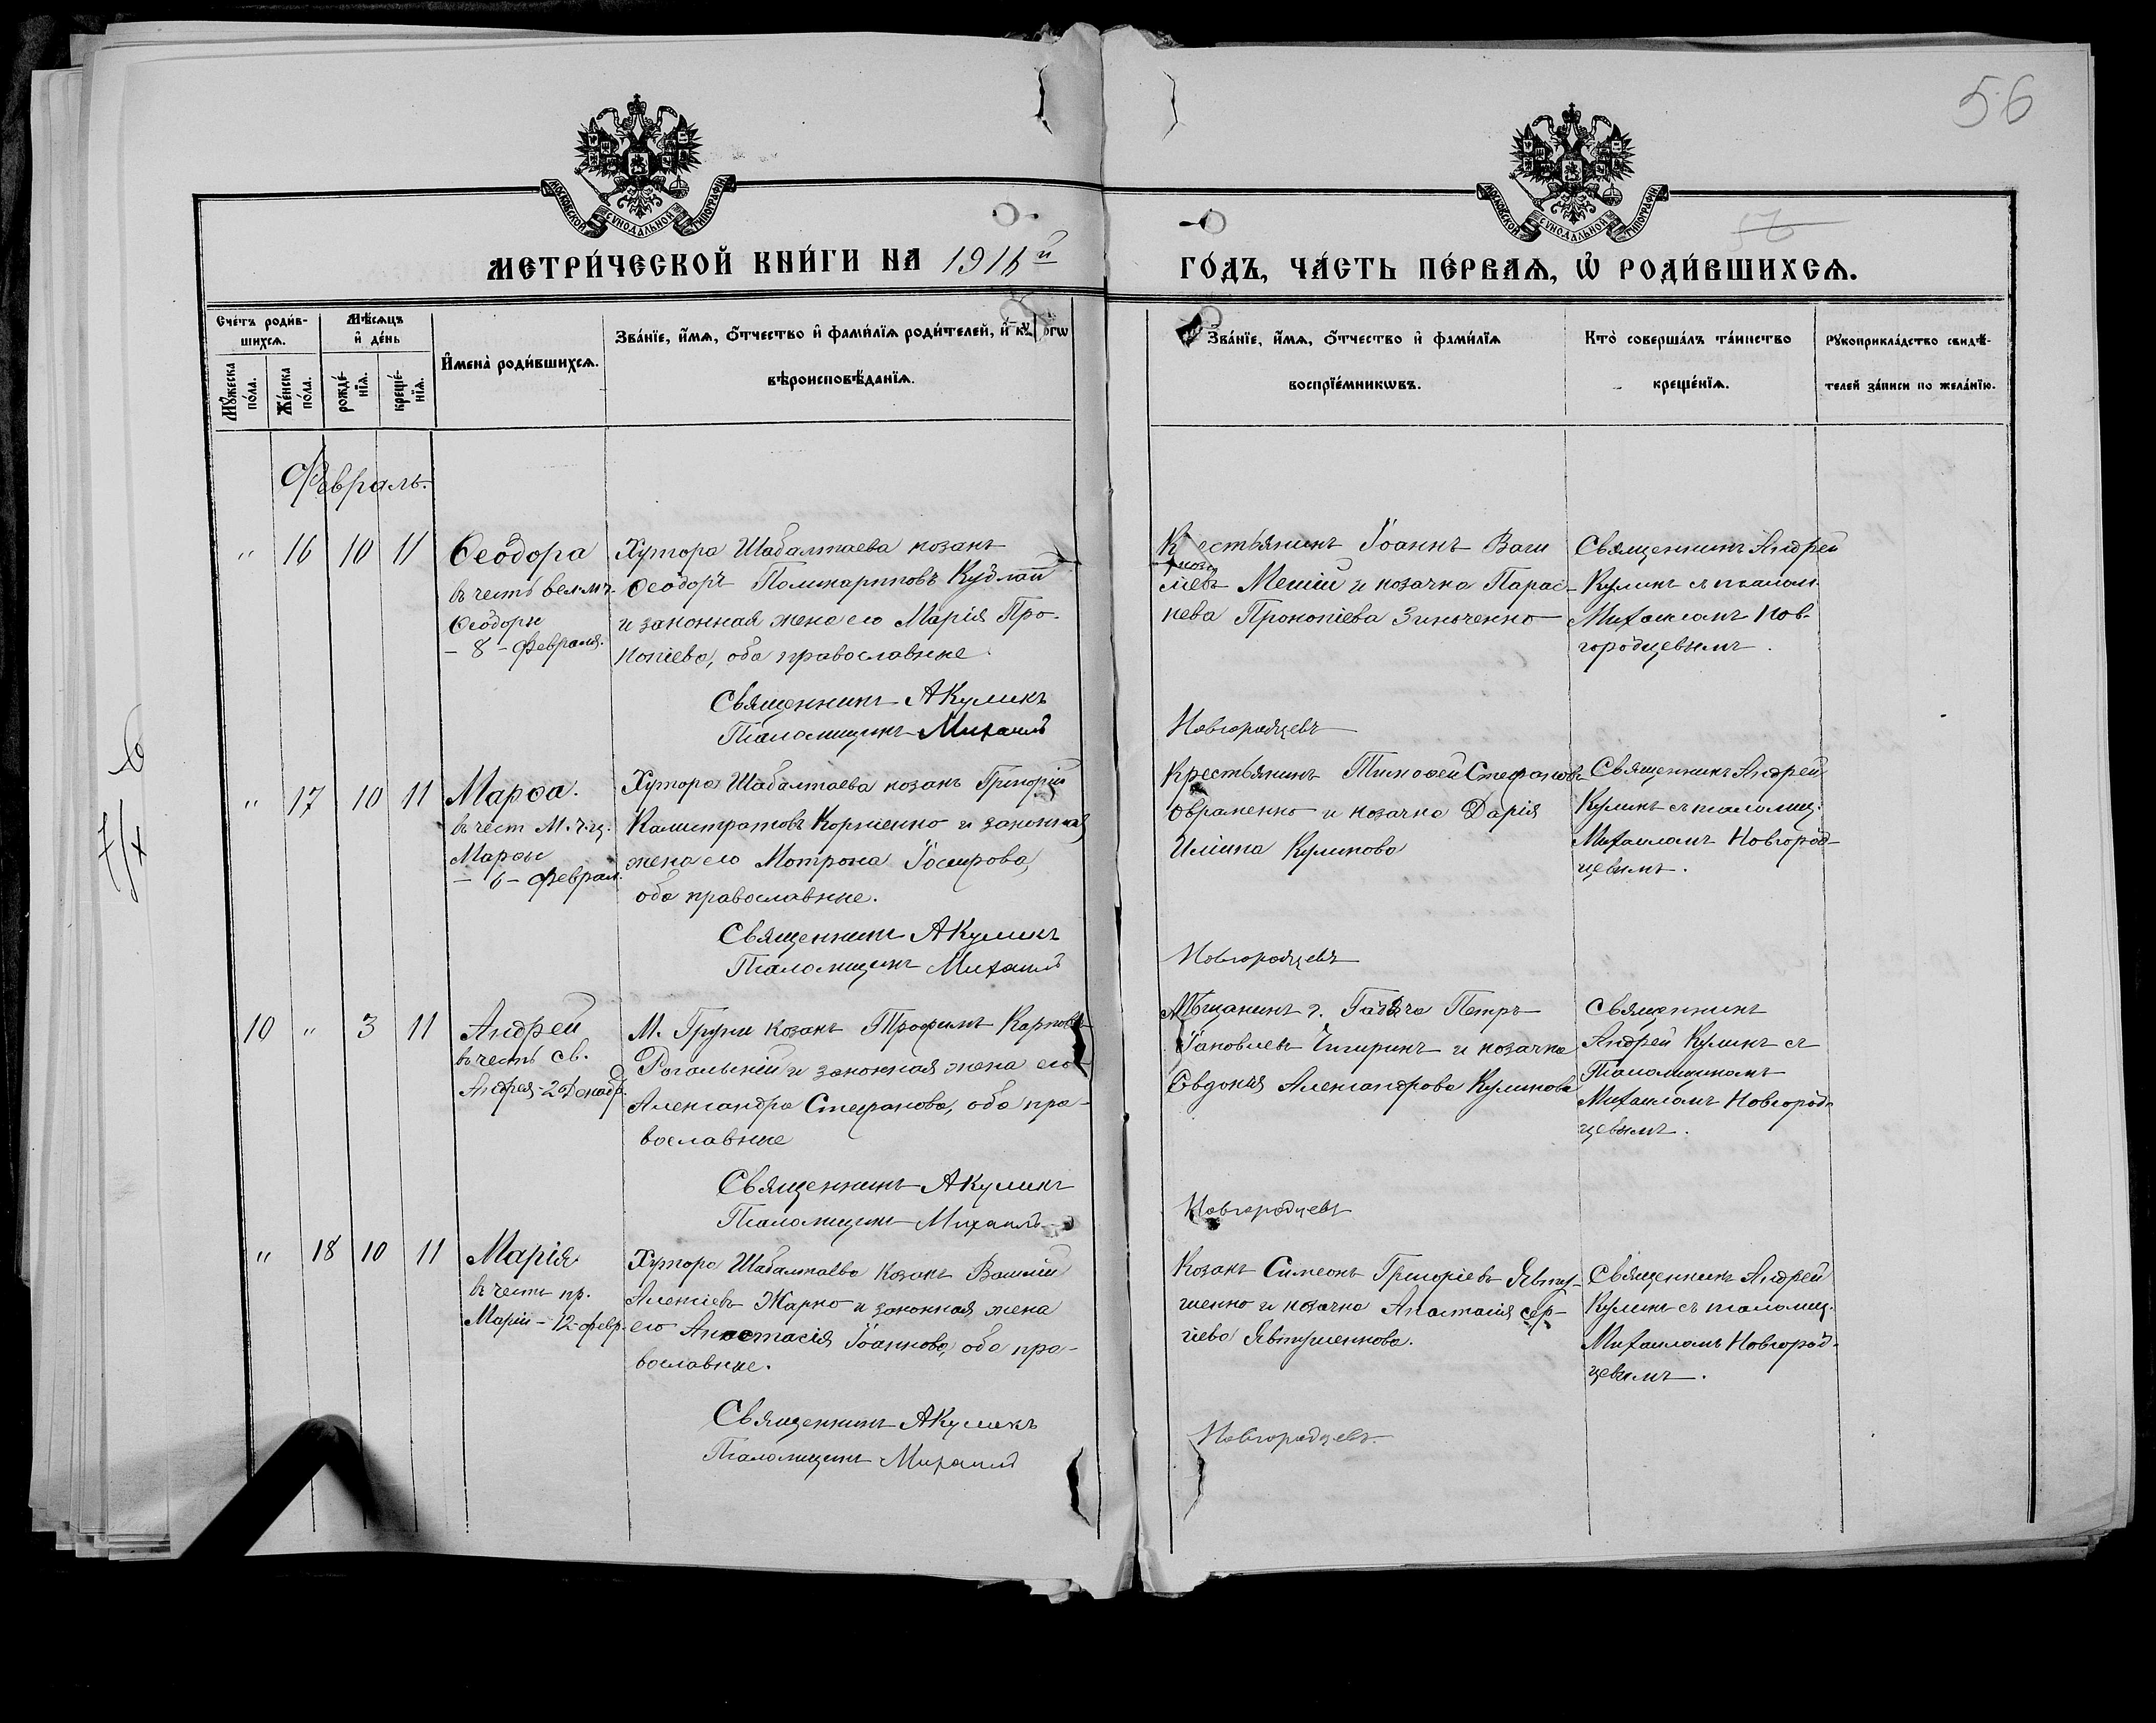 56
МОСКОВСКОЙ СУНОДАЛЬНОЙ ТИПОГРАФІИ
МОСКОВСКОЙ СУНОДАЛЬНОЙ ТИПОГРАФІИ
56
МЕТРИ́ЧЕСКОЙ КНИ́ГИ НА 1916й
ГО́ДЪ, ЧА́СТЬ ПЕ́РВАѦ, Ѡ РОДИ́ВШИХСѦ.
Сче́тъ роди́в-
шихсѧ.
Мѣ́сѧцъ
и҆ де́нь
Мꙋ́жеска
по́ла.
Же́нска
по́ла.
рожде́-
нїѧ.
креще́-
нїѧ.
И҆мена̀ роди́вшихсѧ.
Зва́нїе, и҆́мѧ, ѻ҆́тчество и҆ фами́лїѧ роди́телей, и҆
вѣроисповѣ́данїѧ.
Зва́нїе, и҆́мѧ, ѻ҆́тчество и҆ фами́лїѧ
воспрїе́мникѡвъ.
Кто̀ соверша́лъ та́инство
креще́нїѧ.
Рꙋкоприкла́дство свидѣ́-
телей за́писи по жела́нїю.
Февраль.
" 16 10 11
Ѳеодора
въ честь вел. мч.
Ѳеодоры
- 8 - февраля.
Хутора Шабалтаева козакъ
Ѳеодоръ Поликарповъ Кудлай
и законная жена его Марія Про-
копіева, оба православные.
Священникъ А Куликъ
Псаломщикъ Михаилъ
Крестьянинъ Іоаннъ Васи
льевъ и козачка Парас-
кева Прокопіева Зинченко
Новгородцевъ
Священникъ Андрей
Куликъ съ псалом.
Михаиломъ Нов-
городцевымъ.
" 17 10 11
Марѳа.
въ чест м.ч.ц.
Марѳы
- 6 - феврал.
Хутора Шабалтаева козакъ Григорій
Калистратовъ Корниенко и законная
жена его Мотрона Іосифова,
оба православные.
Священникъ А Куликъ
Псаломщикъ Михаилъ
Крестьянинъ Тимоѳей Стефановъ
Овраменко и козачка Дарія
Иліина Куликова
Новгородцевъ
Священникъ Андрей
Куликъ съ псаломщ.
Михаиломъ Новгород-
цевымъ.
10 " 3 11
Андрей
въ честь св.
Андрея - 2 Декабр.
М. Груни козакъ Трофимъ Карповъ
Рогальскій и законная жена его
Александра Стефанова, оба пра-
вославные
Священникъ А Куликъ
Псаломщикъ Михаилъ
Мѣщанинъ г. Гадяча Петръ
Іаковлевъ Чигиринъ и козачка
Евдокія Александрова Куликова
Новгородцевъ
Священникъ
Андрей Куликъ съ
Псаломщикомъ
Михаиломъ Новгород-
цевымъ.
" 18 10 11
Марія
въ честь пр.
Маріи - 12 февр.
Хутора Шабалтаева козакъ Василій
Алексіевъ Жарко и законная жена
его Анастасія Іоаннова, оба пра-
вославные.
Священникъ А Куликъ
Псаломщикъ Михаилъ
Козакъ Симеонъ Григоріевъ Явту-
шенко и козачка Анастасія Сер-
гіева Явтушенкова.
Новгородцевъ.
Священникъ Андрей
Куликъ съ псаломщ.
Михаиломъ Новгород-
цевымъ.